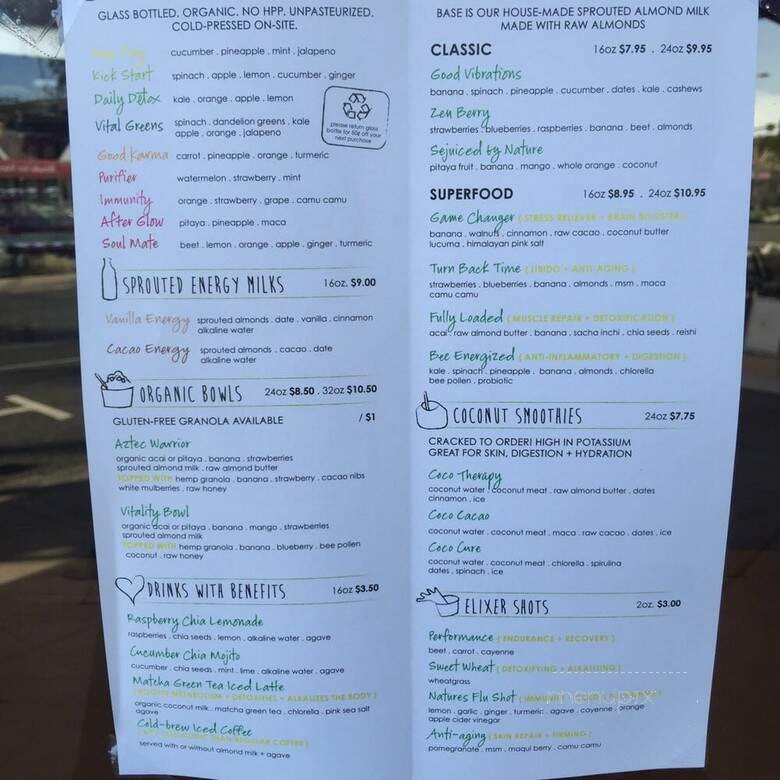 GLASS BOTTLED. ORGANIC. NO HPP. UNPASTEURIZED.
COLD-PRESSED ON-SITE.
cucumber . pineapple . mint . jalapeno
Kick Start spinach . apple . lemon . cucumber . ginger
Daily Detox kale . orange . apple . lemon
Vital Greens spinach . dandelion greens . kale
apple . orange . jalapeno
please return glass
bottle for 50¢ off your
next purchase
Good Karma carrot . pineapple . orange . turmeric
Purifier watermelon . strawberry . mint
Immunity orange . strawberry . grape . camu camu
After Glow pitaya . pineapple . maca
Soul Mate beet . lemon . orange . apple . ginger . turmeric
SPROUTED ENERGY MILKS 16oz. $9.00
Vanilla Energy sprouted almonds . date . vanilla . cinnamon
alkaline water
Cacao Energy sprouted almonds . cacao . date
alkaline water
ORGANIC BOWLS 24oz $8.50 . 32oz $10.50
GLUTEN-FREE GRANOLA AVAILABLE / $1
Aztec Warrior
organic acai or pitaya . banana . strawberries
sprouted almond milk . raw almond butter
TOPPED WITH hemp granola . banana . strawberry . cacao nibs
white mulberries . raw honey
Vitality Bowl
organic acai or pitaya . banana . mango . strawberries
sprouted almond milk
TOPPED WITH hemp granola . banana . blueberry . bee pollen
coconut . raw honey
DRINKS WITH BENEFITS 16oz $3.50
Raspberry Chia Lemonade
raspberries . chia seeds . lemon . alkaline water . agave
Cucumber Chia Mojito
cucumber . chia seeds . mint . lime . alkaline water . agave
Matcha Green Tea Iced Latte
METABOLISM + DETOXIFIES + ALKALIZES THE BODY ]
organic coconut milk . matcha green tea . chlorella . pink sea salt
agave
Cold-brew Iced Coffee
THAN REGULAR COFFEE ]
served with or without almond milk + agave
BASE IS OUR HOUSE-MADE SPROUTED ALMOND MILK
MADE WITH RAW ALMONDS
CLASSIC 16oz $7.95 . 24oz $9.95
Good Vibrations
banana . spinach . pineapple . cucumber . dates . kale . cashews
Zen Berry
strawberries . blueberries . raspberries . banana . beet . almonds
Sejuiced by Nature
pitaya fruit . banana . mango . whole orange . coconut
SUPERFOOD 16oz $8.95 . 24oz $10.95
Game Changer [ STRESS RELIEVER + BRAIN BOOSTER ]
banana . walnuts . cinnamon . raw cacao . coconut butter
lucuma . himalayan pink salt
Turn Back Time [ LIBIDO + ANTI-AGING ]
strawberries . blueberries . banana . almonds . msm . maca
camu camu
Fully Loaded [ MUSCLE REPAIR + DETOXIFICATION ]
acai . raw almond butter . banana . sacha inchi . chia seeds . reishi
Bee Energized [ ANTI-INFLAMMATORY + DIGESTION ]
kale . spinach . pineapple . banana . almonds . chlorella
bee pollen . probiotic
COCONUT SMOOTHIES 24oz $7.75
CRACKED TO ORDER! HIGH IN POTASSIUM
GREAT FOR SKIN, DIGESTION + HYDRATION
Coco Therapy
coconut water . coconut meat . raw almond butter . dates
cinnamon . ice
Coco Cacao
coconut water . coconut meat . maca . raw cacao . dates . ice
Coco Cure
coconut water . coconut meat . chlorella . spirulina
dates . spinach . ice
ELIXER SHOTS 2oz. $3.00
Performance [ ENDURANCE + RECOVERY ]
beet . carrot . cayenne
Sweet Wheat [ DETOXIFYING + ALKALIZING ]
wheatgrass
Natures Flu Shot [ IMMUNITY
lemon . garlic . ginger . turmeric . agave . cayenne . orange
apple cider vinegar
Anti-aging [ SKIN REPAIR + FIRMING ]
pomegranate . msm . maqui berry . camu camu